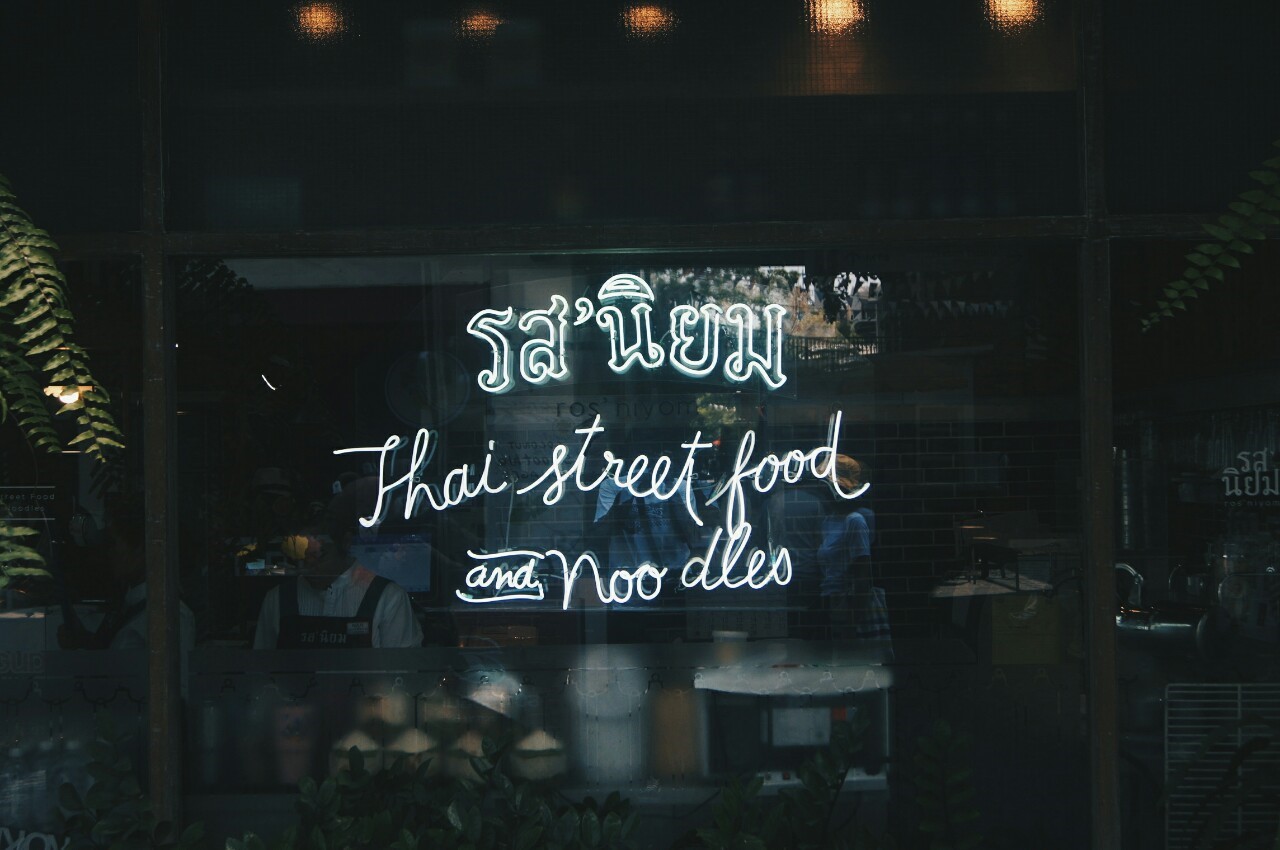 รส'นิยม
ros' niyom
Thai street food
and Noodles
street Food
Noodles
รส'
นิยม
ros'niyom
รส'นิยม